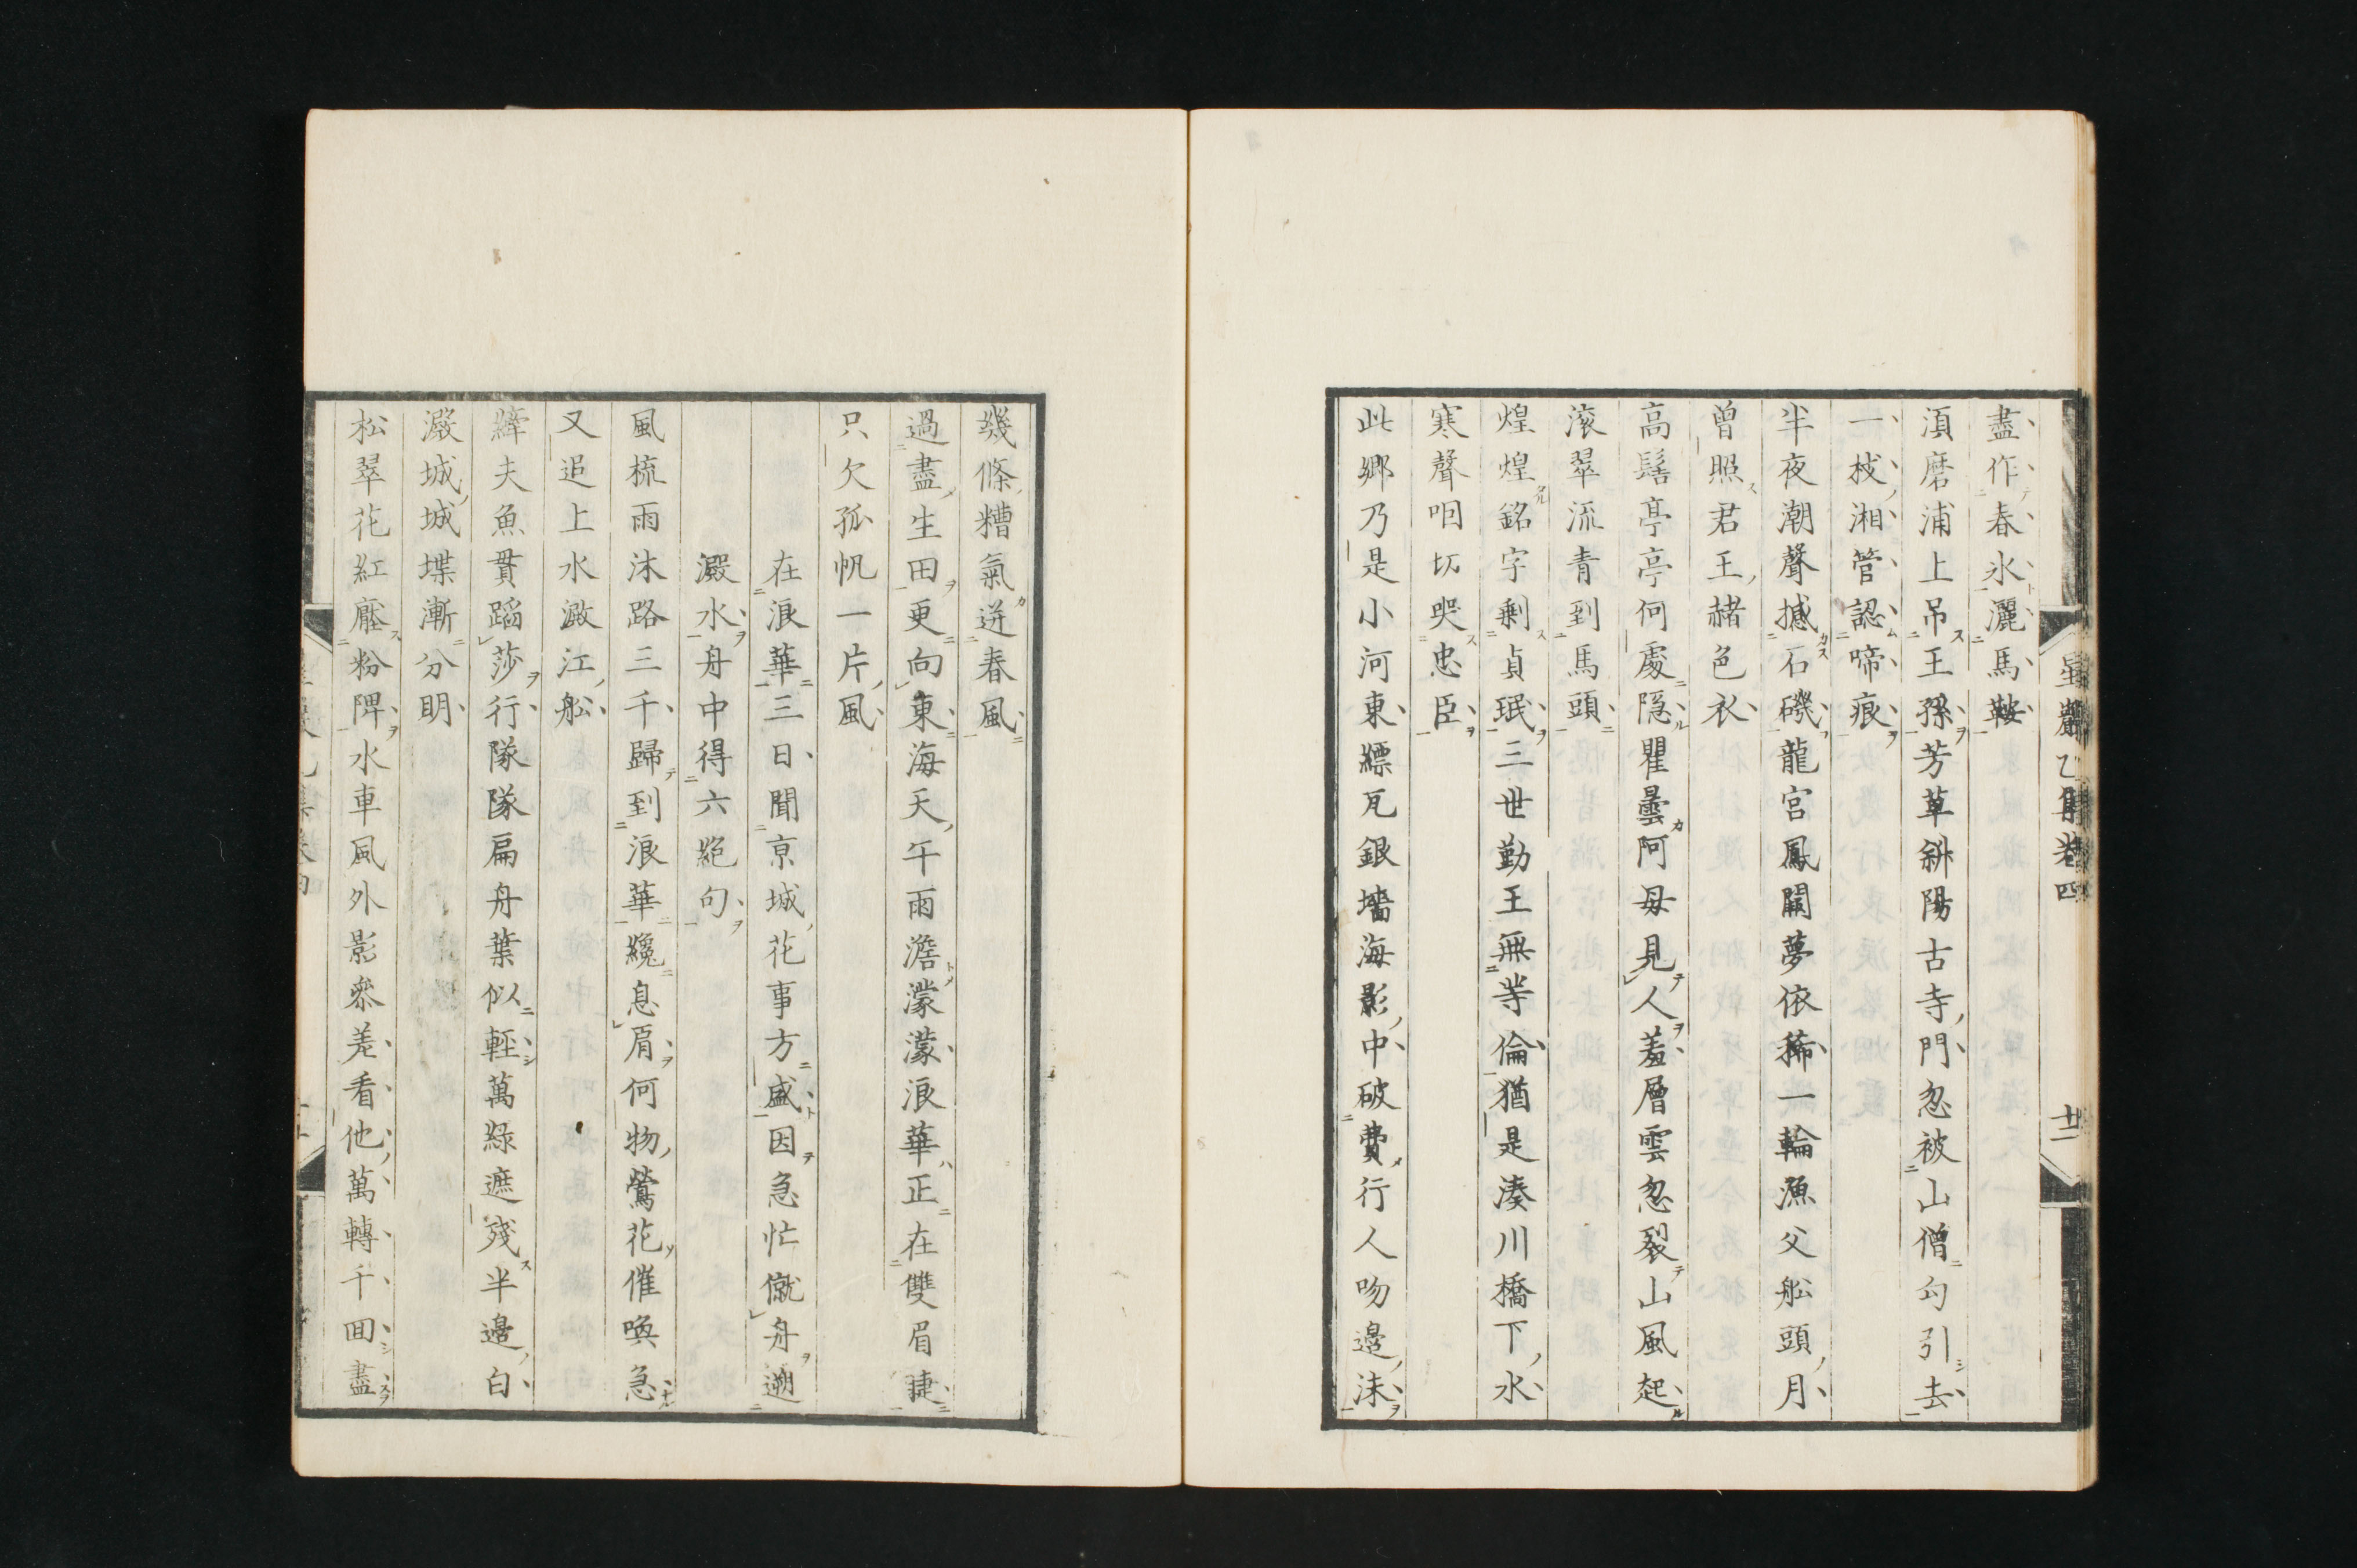 盡作春氷灑馬鞍
湏磨浦上吊王孫芳草斜陽古寺門忽被山僧勾引去
一枝湘管認啼痕
半夜潮聲撼石磯龍宮鳳闕夢依稀一輪漁父舩頭月
曾照君王赭色衣
高髻亭亭何處隠瞿曇阿母見人羞層雲忽裂山風起
滚翠流青到馬頭
煌煌銘字剩貞珉三世勤王無等倫猶是湊川橋下水
寒聲咽㘫哭忠臣
此鄉乃是小河東縹瓦銀墻海影中破費行人吻邊沫
幾條糟氣迸春風
過盡生田更向東海天午雨澹濛濛浪華正在雙眉睫
只欠孤帆一片風
在浪華三日聞京城花事方盛因急忙僦舟遡
澱水舟中得六絶句
風梳雨沐路三千歸到浪華纔息肩何物鶯花催喚急
又追上水澱江舩
縴夫魚貫蹈莎行隊隊扁舟葉似輕萬綠遮殘半邊白
澱城城堞漸分明
松翠花紅壓粉陴水車風外影參差看他萬轉千回盡
星巖乙集卷四